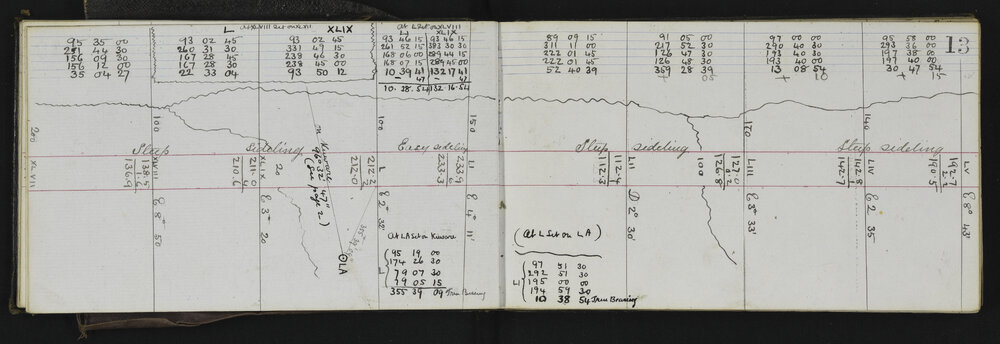 L At XLVIII Set on XLVII XLIX
At L Set on XLVIII
LI XLIX
13
95 35 00
291 44 30
156 09 30
156 12 00
35 04 27
93 02 45
260 31 30
167 28 45
167 28 30
22 33 04
93 02 45
331 49 15
238 46 30
238 45 00
93 50 12
93 46 15
261 52 15
168 06 00
168 07 15
10 39 41
47
10.28.54
93 46 15
383 30 30
289 44 15
289 45 00
132 17 41
47
132.16.54
89 09 15
311 11 00
222 01 45
222 01 45
52 40 39
91 05 00
217 52 30
126 47 30
126 48 30
369 28 39
+ 05
97 00 00
290 40 30
193 40 30
193 40 00
13 08 54
+ 10
95 58 00
293 36 00
197 38 00
197 40 00
30 47 54
+ 15
200
100
100
150
170
140
Steep sideling
Easy sideling
Steep sideling
Steep sideling
XLVII
136.9
XLVIII
E 8° 50
210.6
211.0
XLIX
E 3° 20
20
96° 32' 47"
(See page 2)
212.0
212.2
L
E 2° 32'
233.3
233.9
LI
E 4° 11'
112.3
LII
D 2° 30'
100
126.8
127.0
LIII
E 3° 33'
142.7
142.8
LIV
E 2 35
190.5
192.7
LV
E 8° 43'
LA
At LA Set on Kuwore
L
95 19 00
174 26 30
79 07 30
79 05 15
355 39 09 True Bearing
(At L Set on LA)
LI
97 51 30
292 51 30
195 00 00
194 59 30
10 38 54 True Bearing